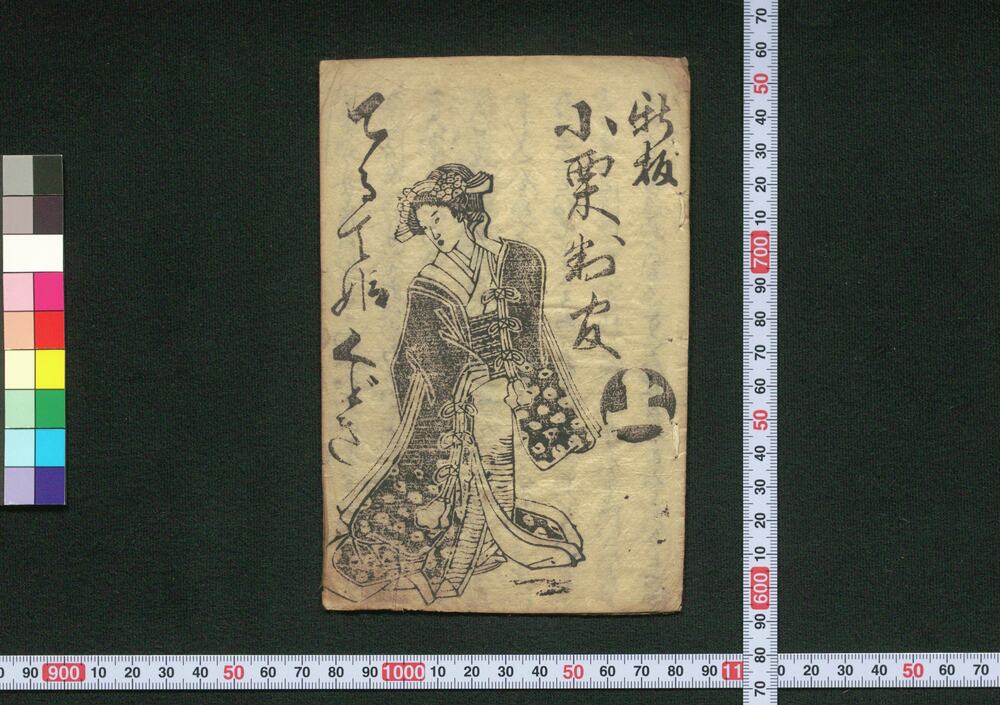 新板
小栗判官
上
てるて姫くどき
70
60
50
40
30
20
10
700
90
80
70
60
50
40
30
20
10
600
90
80
70
90 900 10 20 30 40 50 60 70 80 90 1000 10 20 30 40 50 60 70 80 90 11 20 30 40 50 60 70